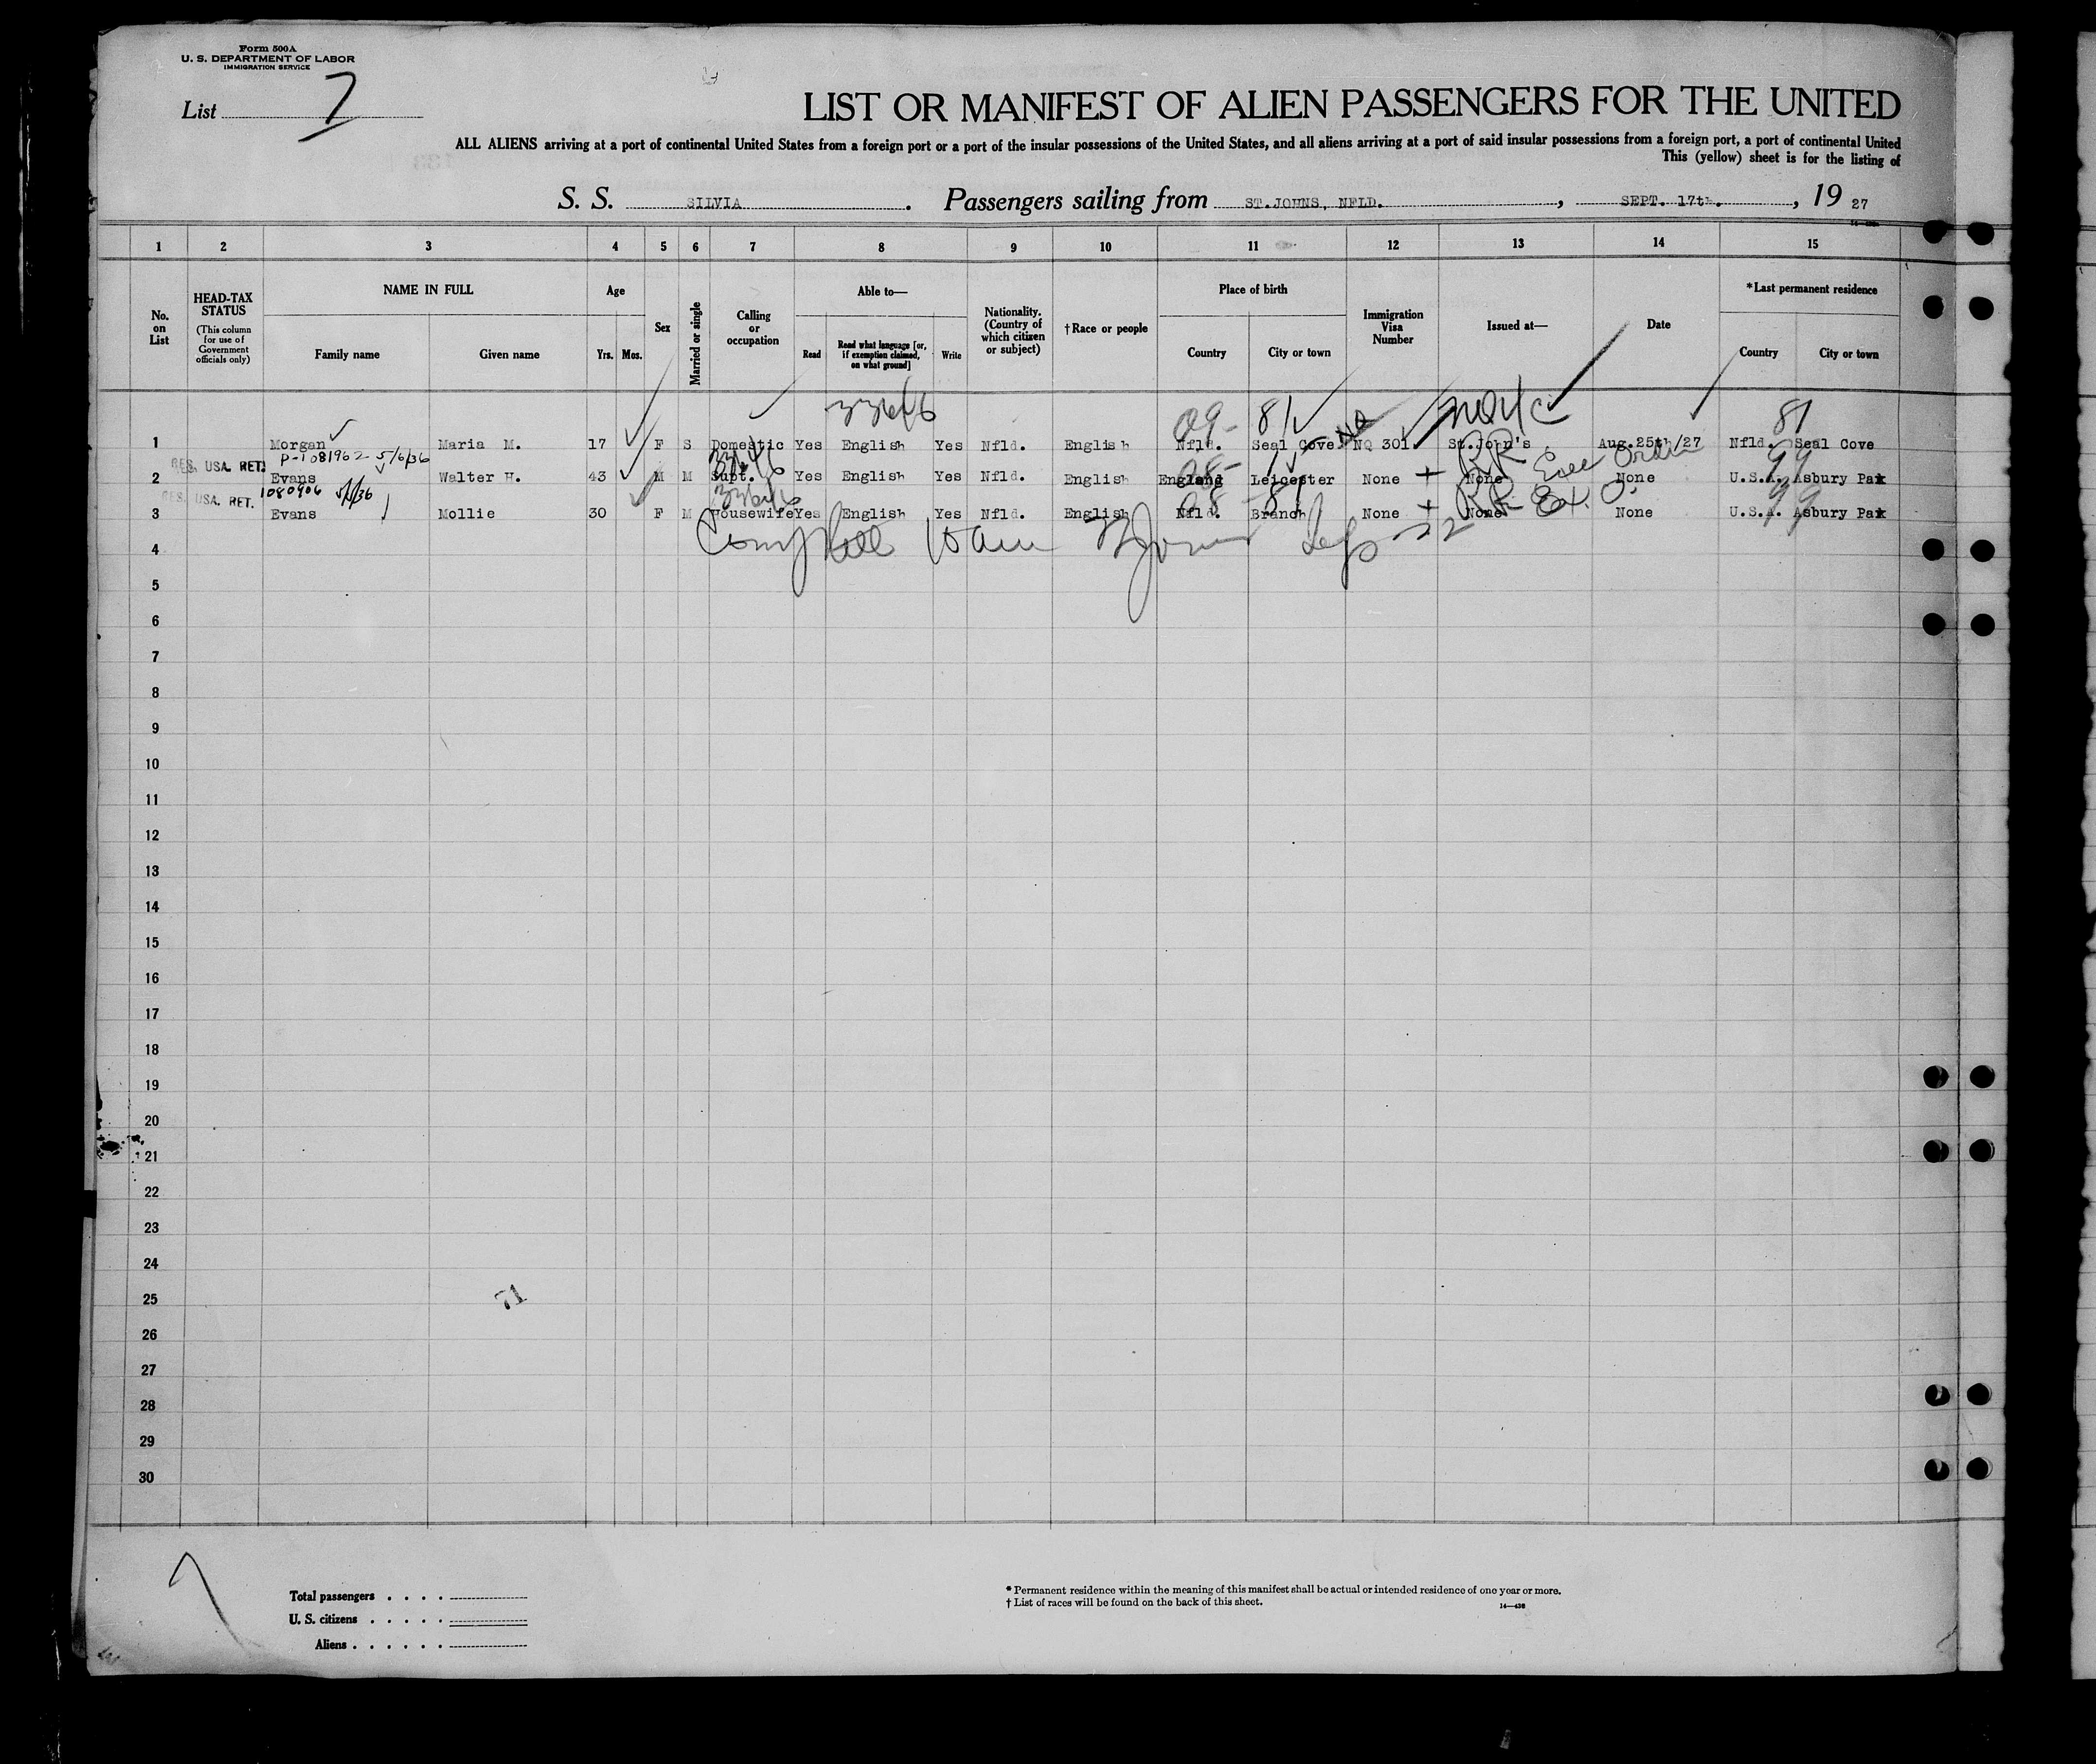 Form 500A
U. S. DEPARTMENT OF LABOR
IMMIGRATION SERVICE
List 7
LIST OR MANIFEST OF ALIEN PASSENGERS FOR THE UNITED
ALL ALIENS arriving at a port of continental United States from a foreign port or a port of the insular possessions of the United States, and all aliens arriving at a port of said insular possessions from a foreign port, a port of continental United
This (yellow) sheet is for the listing of
S. S. SILVIA. Passengers sailing from ST.JOHNS, NFLD., SEPT. 17th., 19 27
1 2 3 4 5 6 7 8 9 10 11 12 13 14 15
No. on List
HEAD-TAX STATUS
(This column for use of Government officials only)
NAME IN FULL
Family name Given name
Age
Yrs. Mos.
Sex
Married or single
Calling or occupation
Able to—
Read
Read what language [or, if exemption claimed, on what ground]
Write
Nationality. (Country of which citizen or subject)
†Race or people
Place of birth
Country City or town
Immigration Visa Number
Issued at—
Date
*Last permanent residence
Country City or town
09- 81 81
1 Morgan Maria M. 17 F S Domestic Yes English Yes Nfld. English Nfld. Seal Cove NQ 301 St.John's Aug.25th/27 Nfld. Seal Cove
P-1081962 5/6/36
RES. USA. RET.
2 Evans Walter H. 43 M M Supt. Yes English Yes Nfld. English England Leicester None None None U.S.A. Asbury Pak
1080906
RES. USA. RET.
3 Evans Mollie 30 F M Housewife Yes English Yes Nfld. English Nfld. Branch None None None U.S.A. Asbury Pak
4
5
6
7
8
9
10
11
12
13
14
15
16
17
18
19
20
21
22
23
24
25
71
26
27
28
29
30
Total passengers . . . .
U. S. citizens . . . . .
Aliens . . . . . .
* Permanent residence within the meaning of this manifest shall be actual or intended residence of one year or more.
† List of races will be found on the back of this sheet.